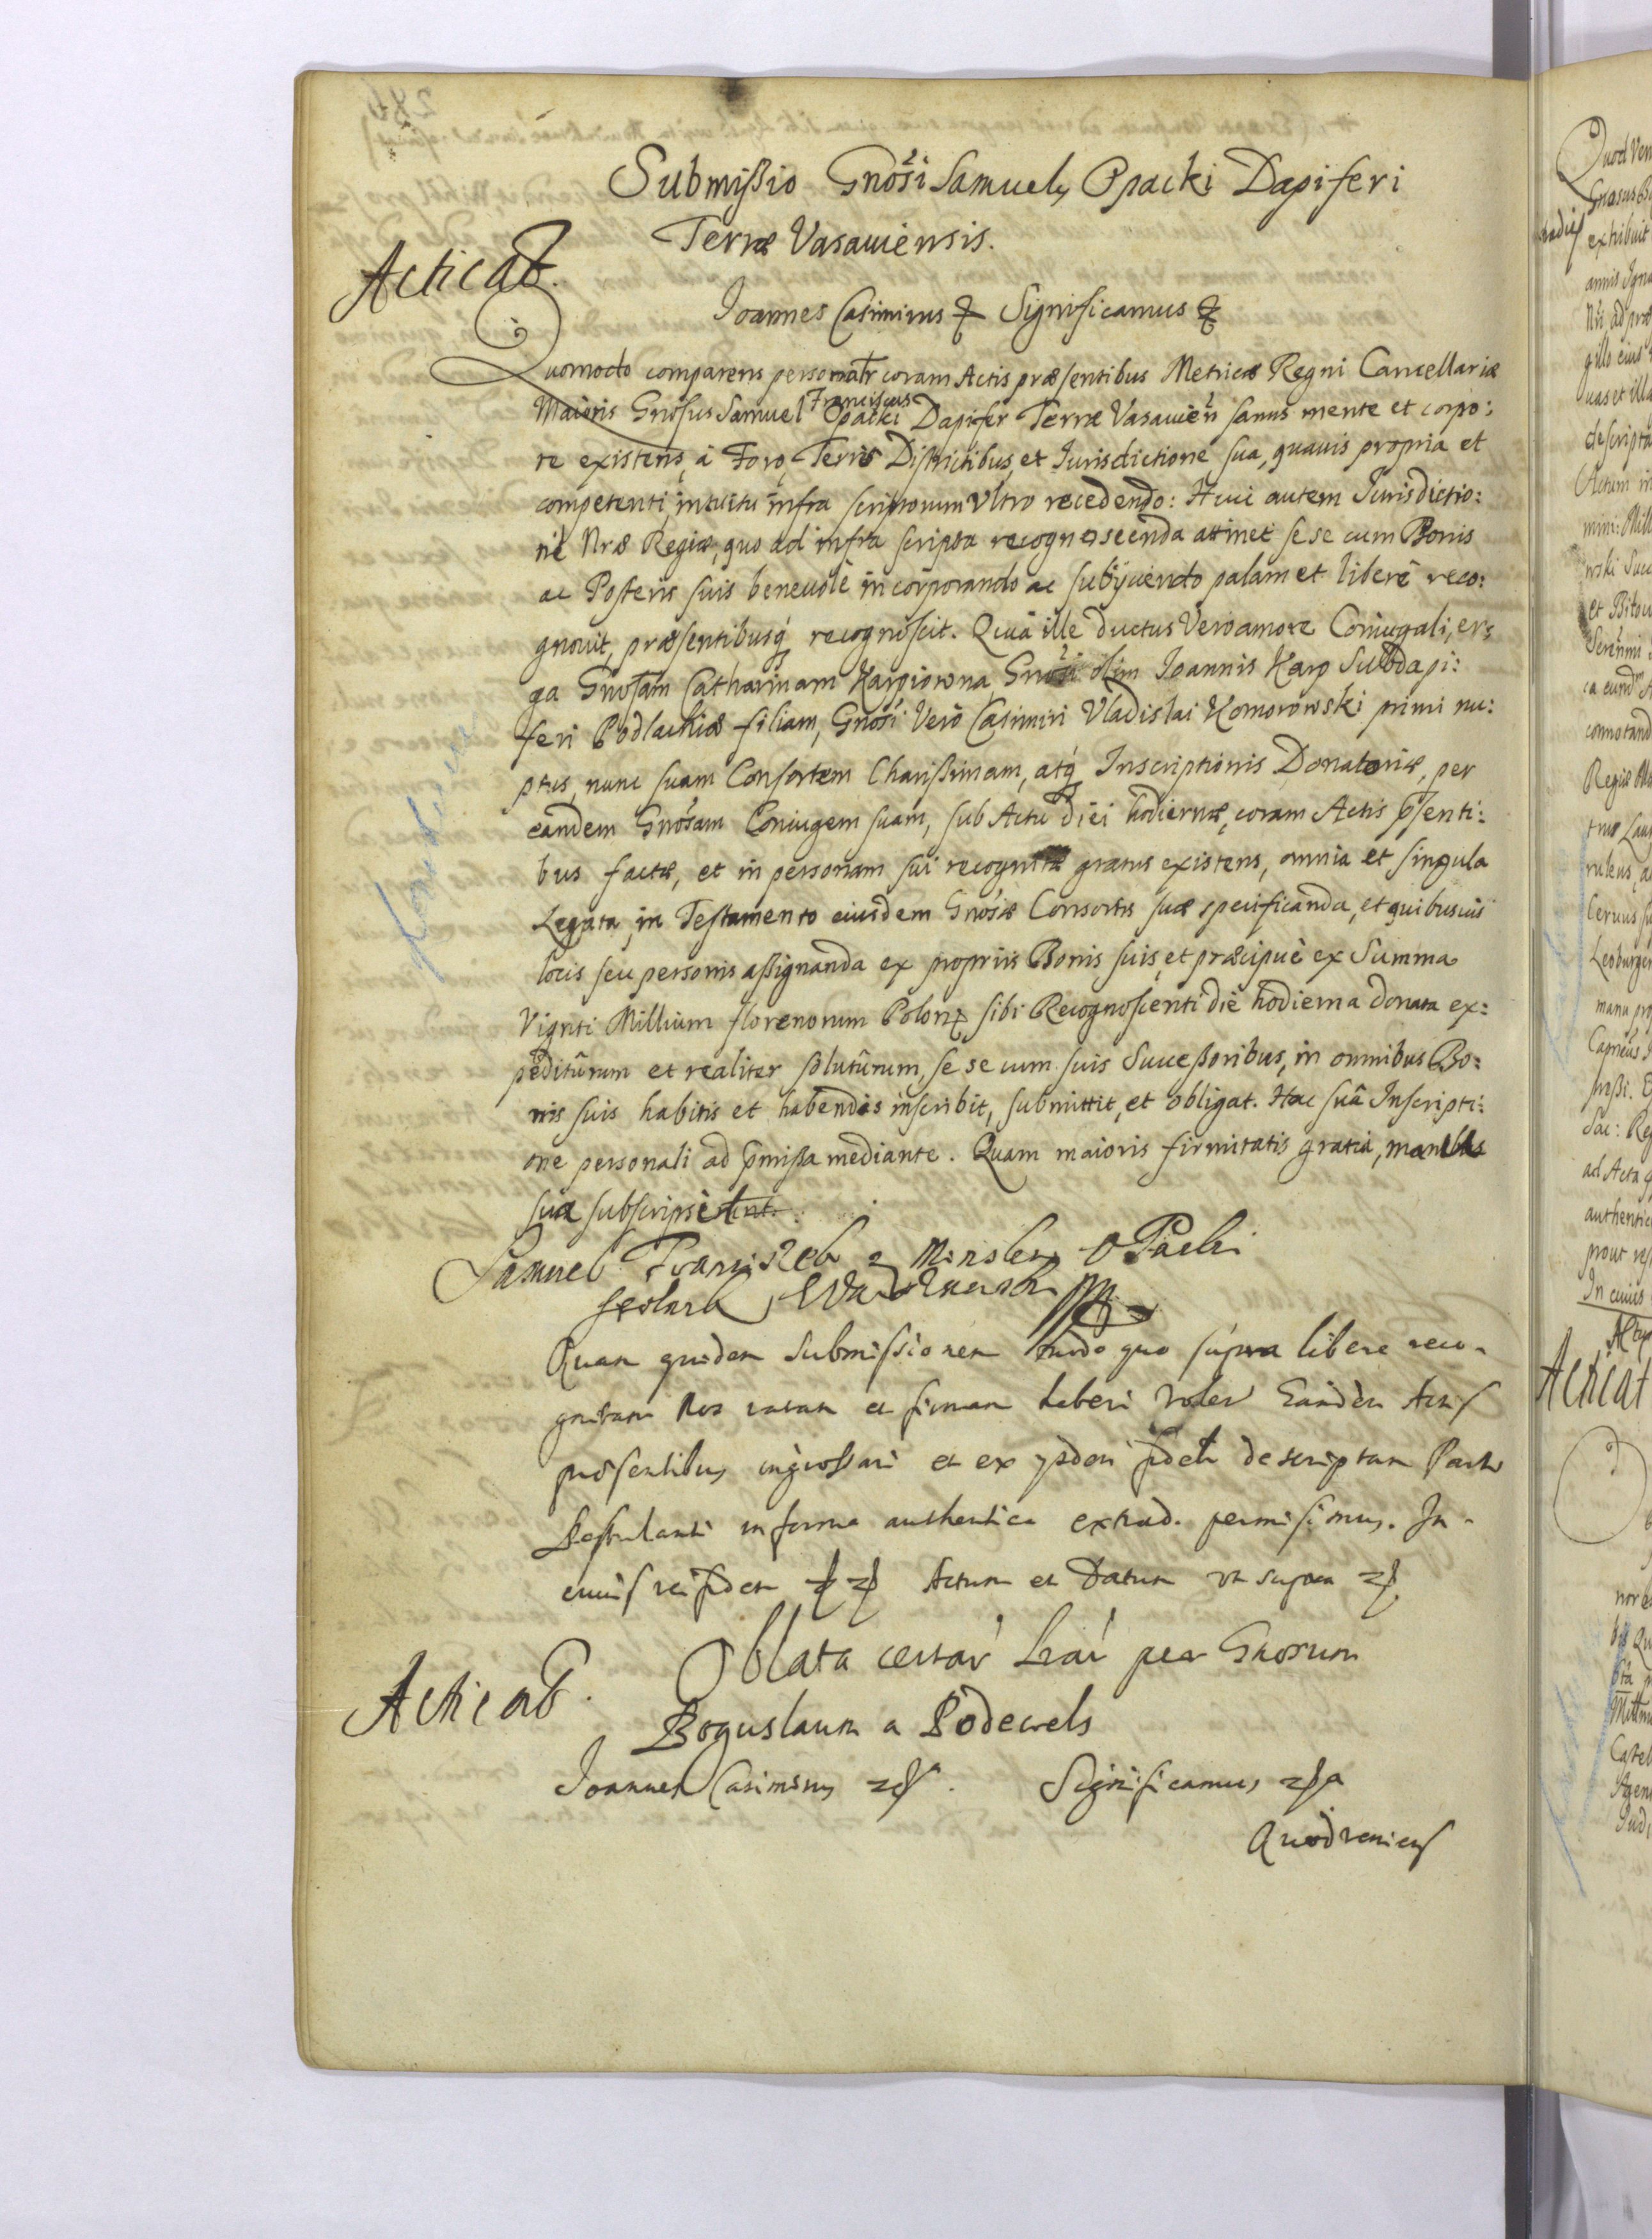 Submißio Gnosi Samuelis Opacki Dapiferi
Terræ Varsauiensis.
Acticat.
Joannes Casimirus Significamus
Quomodo comparens personaltr coram Actis præsentibus Metricæ Regni Cancellariæ
Maioris Gnosus Samuel Franciscus Opacki Dapifer Terræ Vasauien sanus mente et corpo:
re existens, à Foro, Terris Districtibus, et Jurisdictione, sua, quauis propria et
competenti, intuitu infra scriptorum Vltro recedendo: Huic autem Jurisdictio:
ni Nræ Regiæ, quo ad infra scripta recognoscenda attinet se se cum Bonis
ac Posteris suis beneuolè incorporando ac subijciendo palam et liberè reco:
gnouit, præsentibusq recognoscit. Quia ille ductus Vero amore Coniugali, er:
ga Gnosam Catharinam Karpiowna, Gnosi olim Joannis Karp Subdapi:
feri Podlachiæ filiam, Gnosi Verò Casimiri Vladislai Komorowski primi nu:
ptus, nunc suam Consortem Charißimam, atq Inscriptionis Donatoriæ, per
eandem Gnosam Coniugem suam, sub Actu diei hodiernæ, coram Actis psenti:
bus factæ, et in personam sui recognitæ gratus existens, omnia et singula
Legata, in Testamento eiusdem Gnosæ Consortis suæ specificanda, et quibusuis
locis seu personis aßignanda ex propriis Bonis suis, et præcipuè ex Summa
Viginti Millium florenorum Polon sibi Recognoscenti die hodierna donata ex:
peditûrum et realiter solutûrum, se se cum suis Succeßoribus, in omnibus Bo:
nis suis habitis et habendis inscribit, submittit, et obligat. Hac suâ Inscripti:
one personali ad pmißa mediante. Quam maioris firmitatis gratia, manibus
sua subscripsit
Samuel Franciszek z Minsken OPacki
Quam quidem Submissionem modo quo supra libere reco-
gnitam Nos ratam et firmam haberi volen Eandem Actis
præsentibus ingrossari et ex ysdem descriptam Parti
Postulanti in forma authentica extrad. permisimus. In
cuius rei fidem Actum et Datum vt supra
Acticat.
Oblata certar Lrar per Gnosum
Boguslaum a Podewels
Joannes Casimirus Significamus
Quod veniens